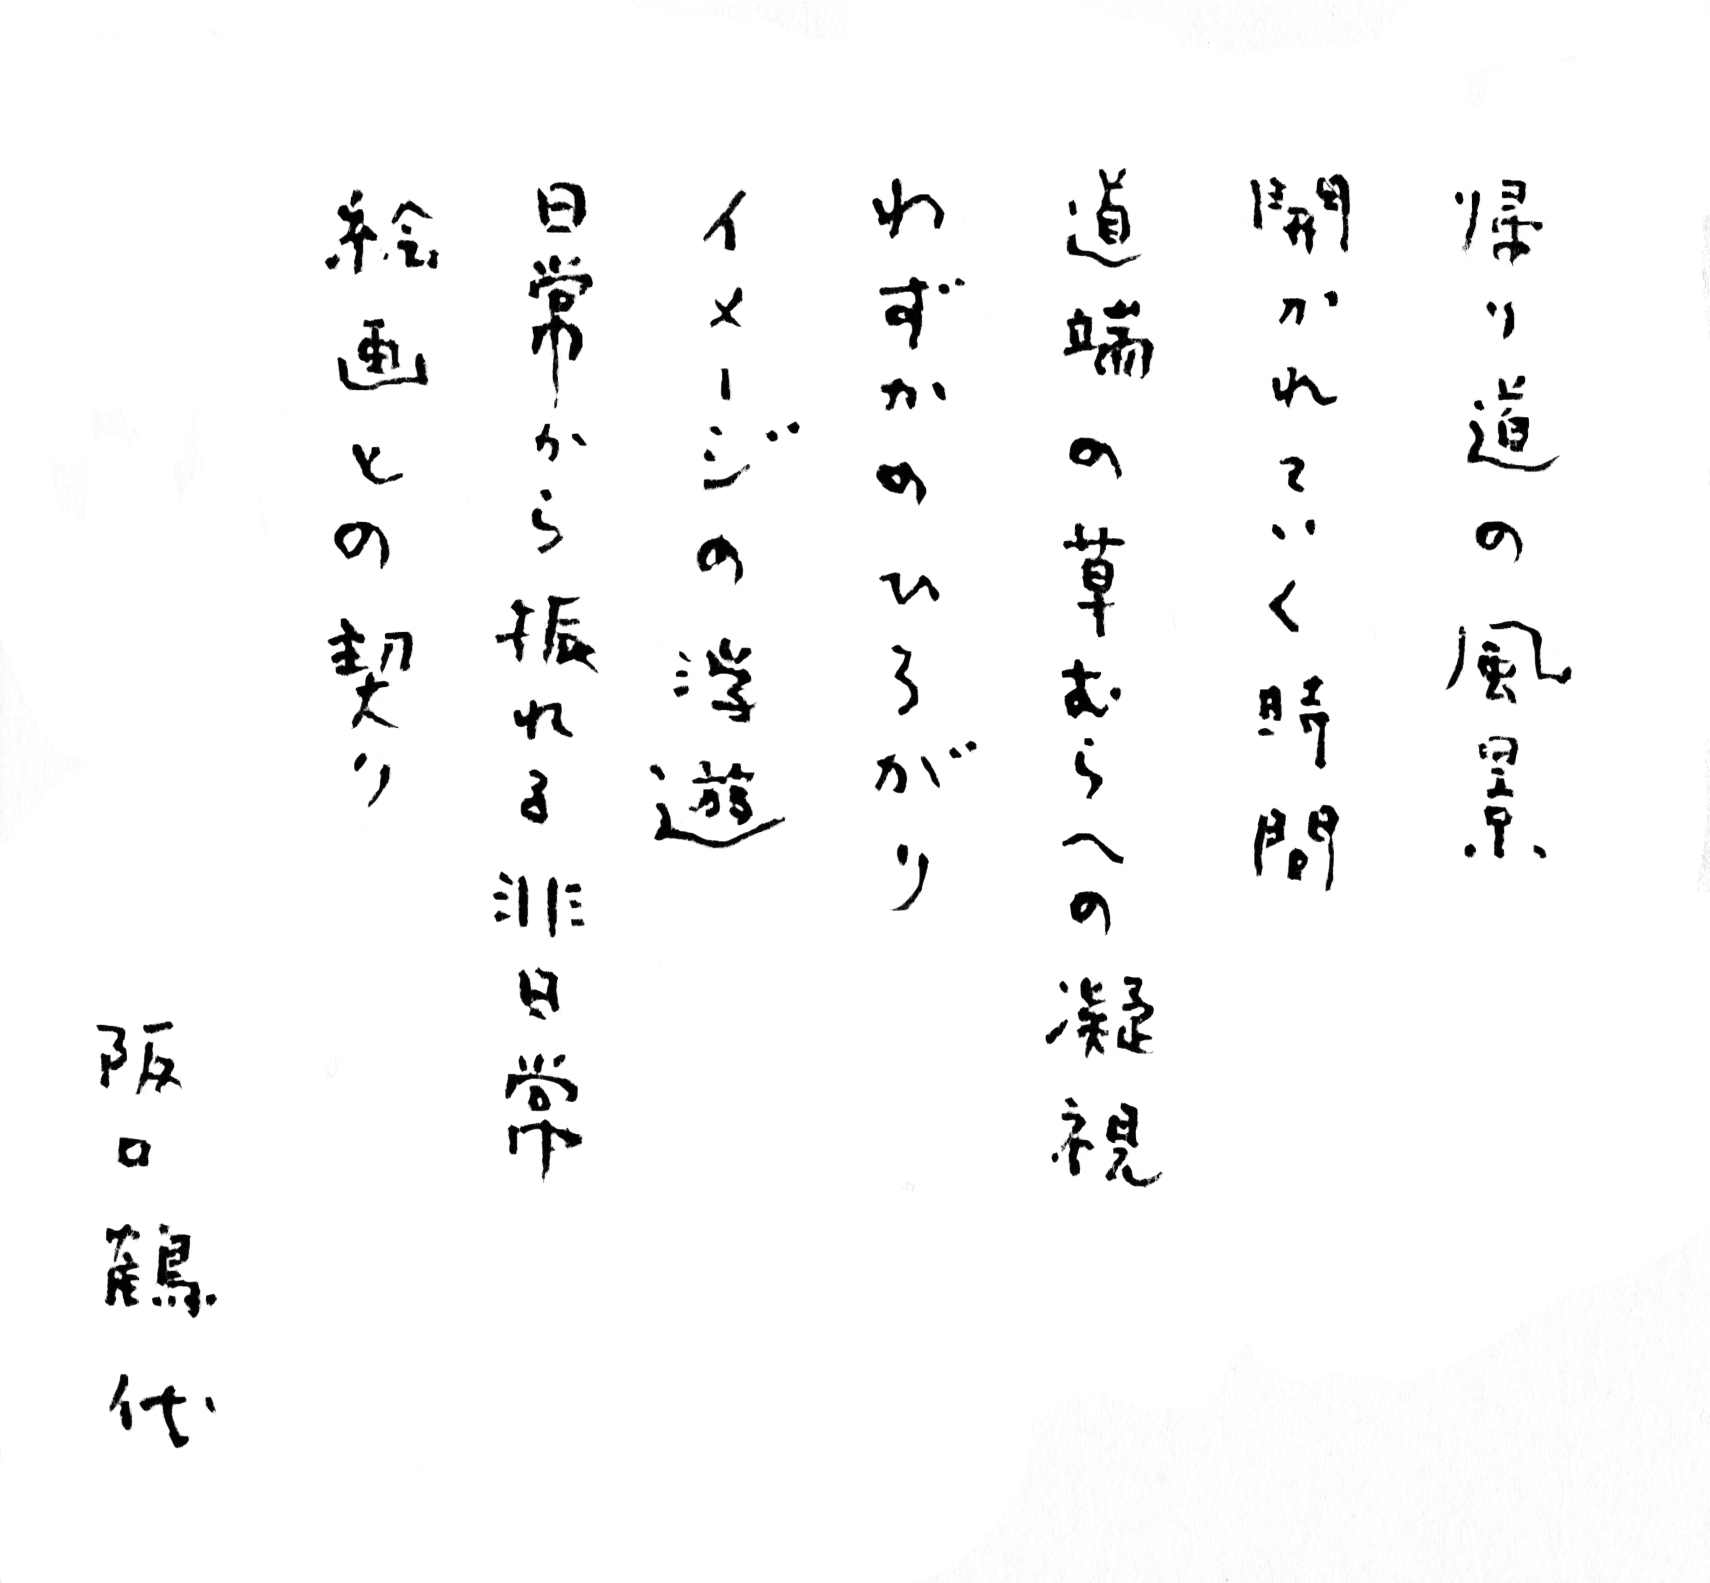 帰り道の風景
開かれていく時間
道端の草むらへの凝視
わずかのひろがり
イメージの浮遊
日常から振れる非日常
絵画との契り
阪口鶴代